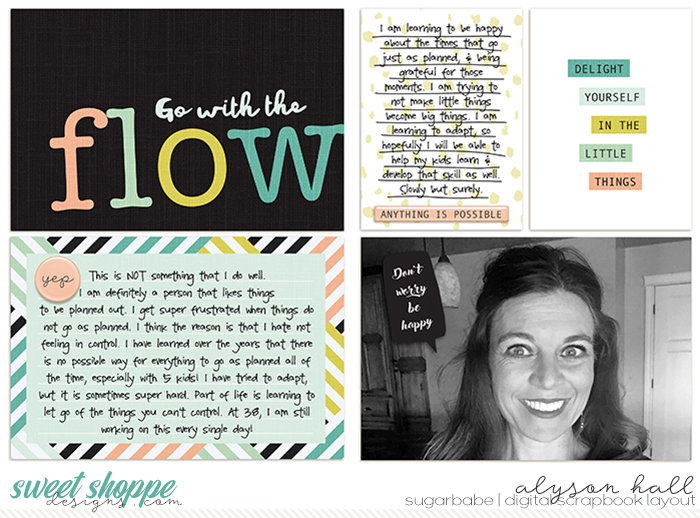 Go with the
flow
I am learning to be happy
about the times that go
just as planned, & being
grateful for those
moments. I am trying to
not make little things
become big things. I am
learning to adapt, so
hopefully I will be able to
help my kids learn &
develop that skill as well.
Slowly but surely.
ANYTHING IS POSSIBLE
DELIGHT
YOURSELF
IN THE
LITTLE
THINGS
yep
This is NOT something that I do well.
I am definitely a person that likes things
to be planned out. I get super frustrated when things do
not go as planned. I think the reason is that I hate not
feeling in control. I have learned over the years that there
is no possible way for everything to go as planned all of
the time, especially with 5 kids! I have tried to adapt,
but it is sometimes super hard. Part of life is learning to
let go of the things you can't control. At 38, I am still
working on this every single day!
Don't
worry
be
happy
sweet shoppe
designs.com
alyson hall
sugarbabe | digital scrapbook layout